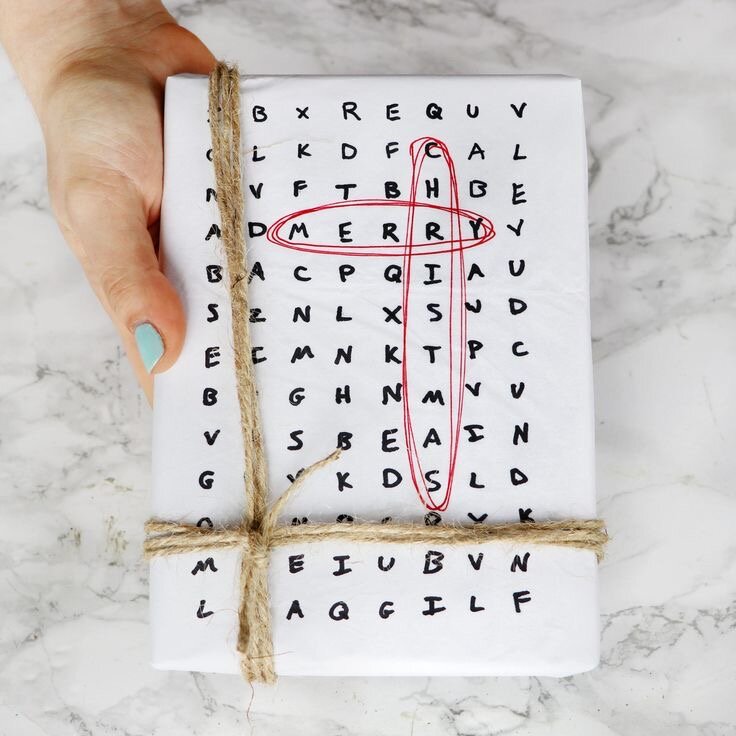 B X R E Q U V
L K D F C A L
V F T B H B E
A D M E R R Y Y
B A C P Q I A U
S Z N L X S W D
E I M N K T P C
B G H N M V U
V S B E A I N
G K D S L D
K
M E I U B V N
L A Q G I L F